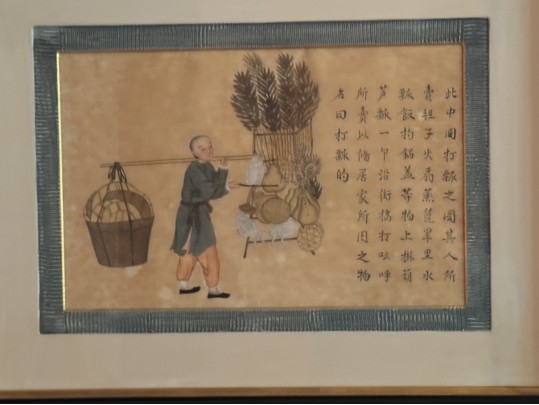 此中國打瓢之圖其人所
賣子火扇蒸篦罩里水
瓢飯杓鍋蓋等物上掛葫
芦瓢一个沿街搞打吆呼
所賣以俻居家所用之物
名曰打瓢的